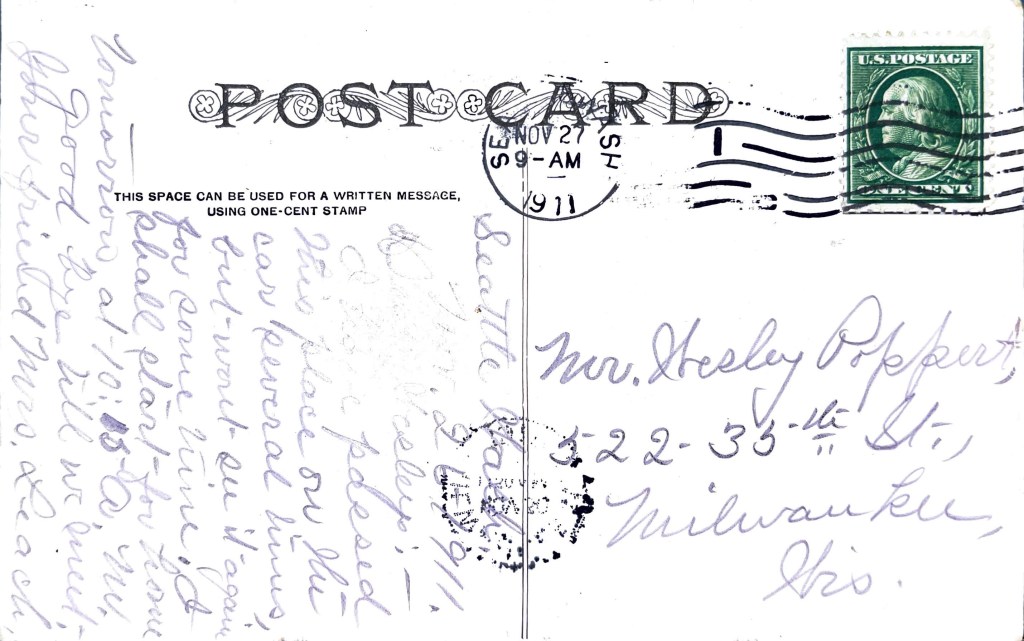 POST CARD
THIS SPACE CAN BE USED FOR A WRITTEN MESSAGE,
USING ONE-CENT STAMP
SE
WASH
NOV 27
9-AM
1911
U.S. POSTAGE
ONE CENT
Seattle Wash.
Nov. 26 1911.
Wesley; —
have passed
this place on the
car several times,
but wont see it again
for some time. I
shall start for home
tomorrow at 10:15 A. M.
Good bye till we meet.
Your friend Mrs. Leach.
Mr. Wesley Poppert,
522-35th St.,
Milwaukee,
Wis.